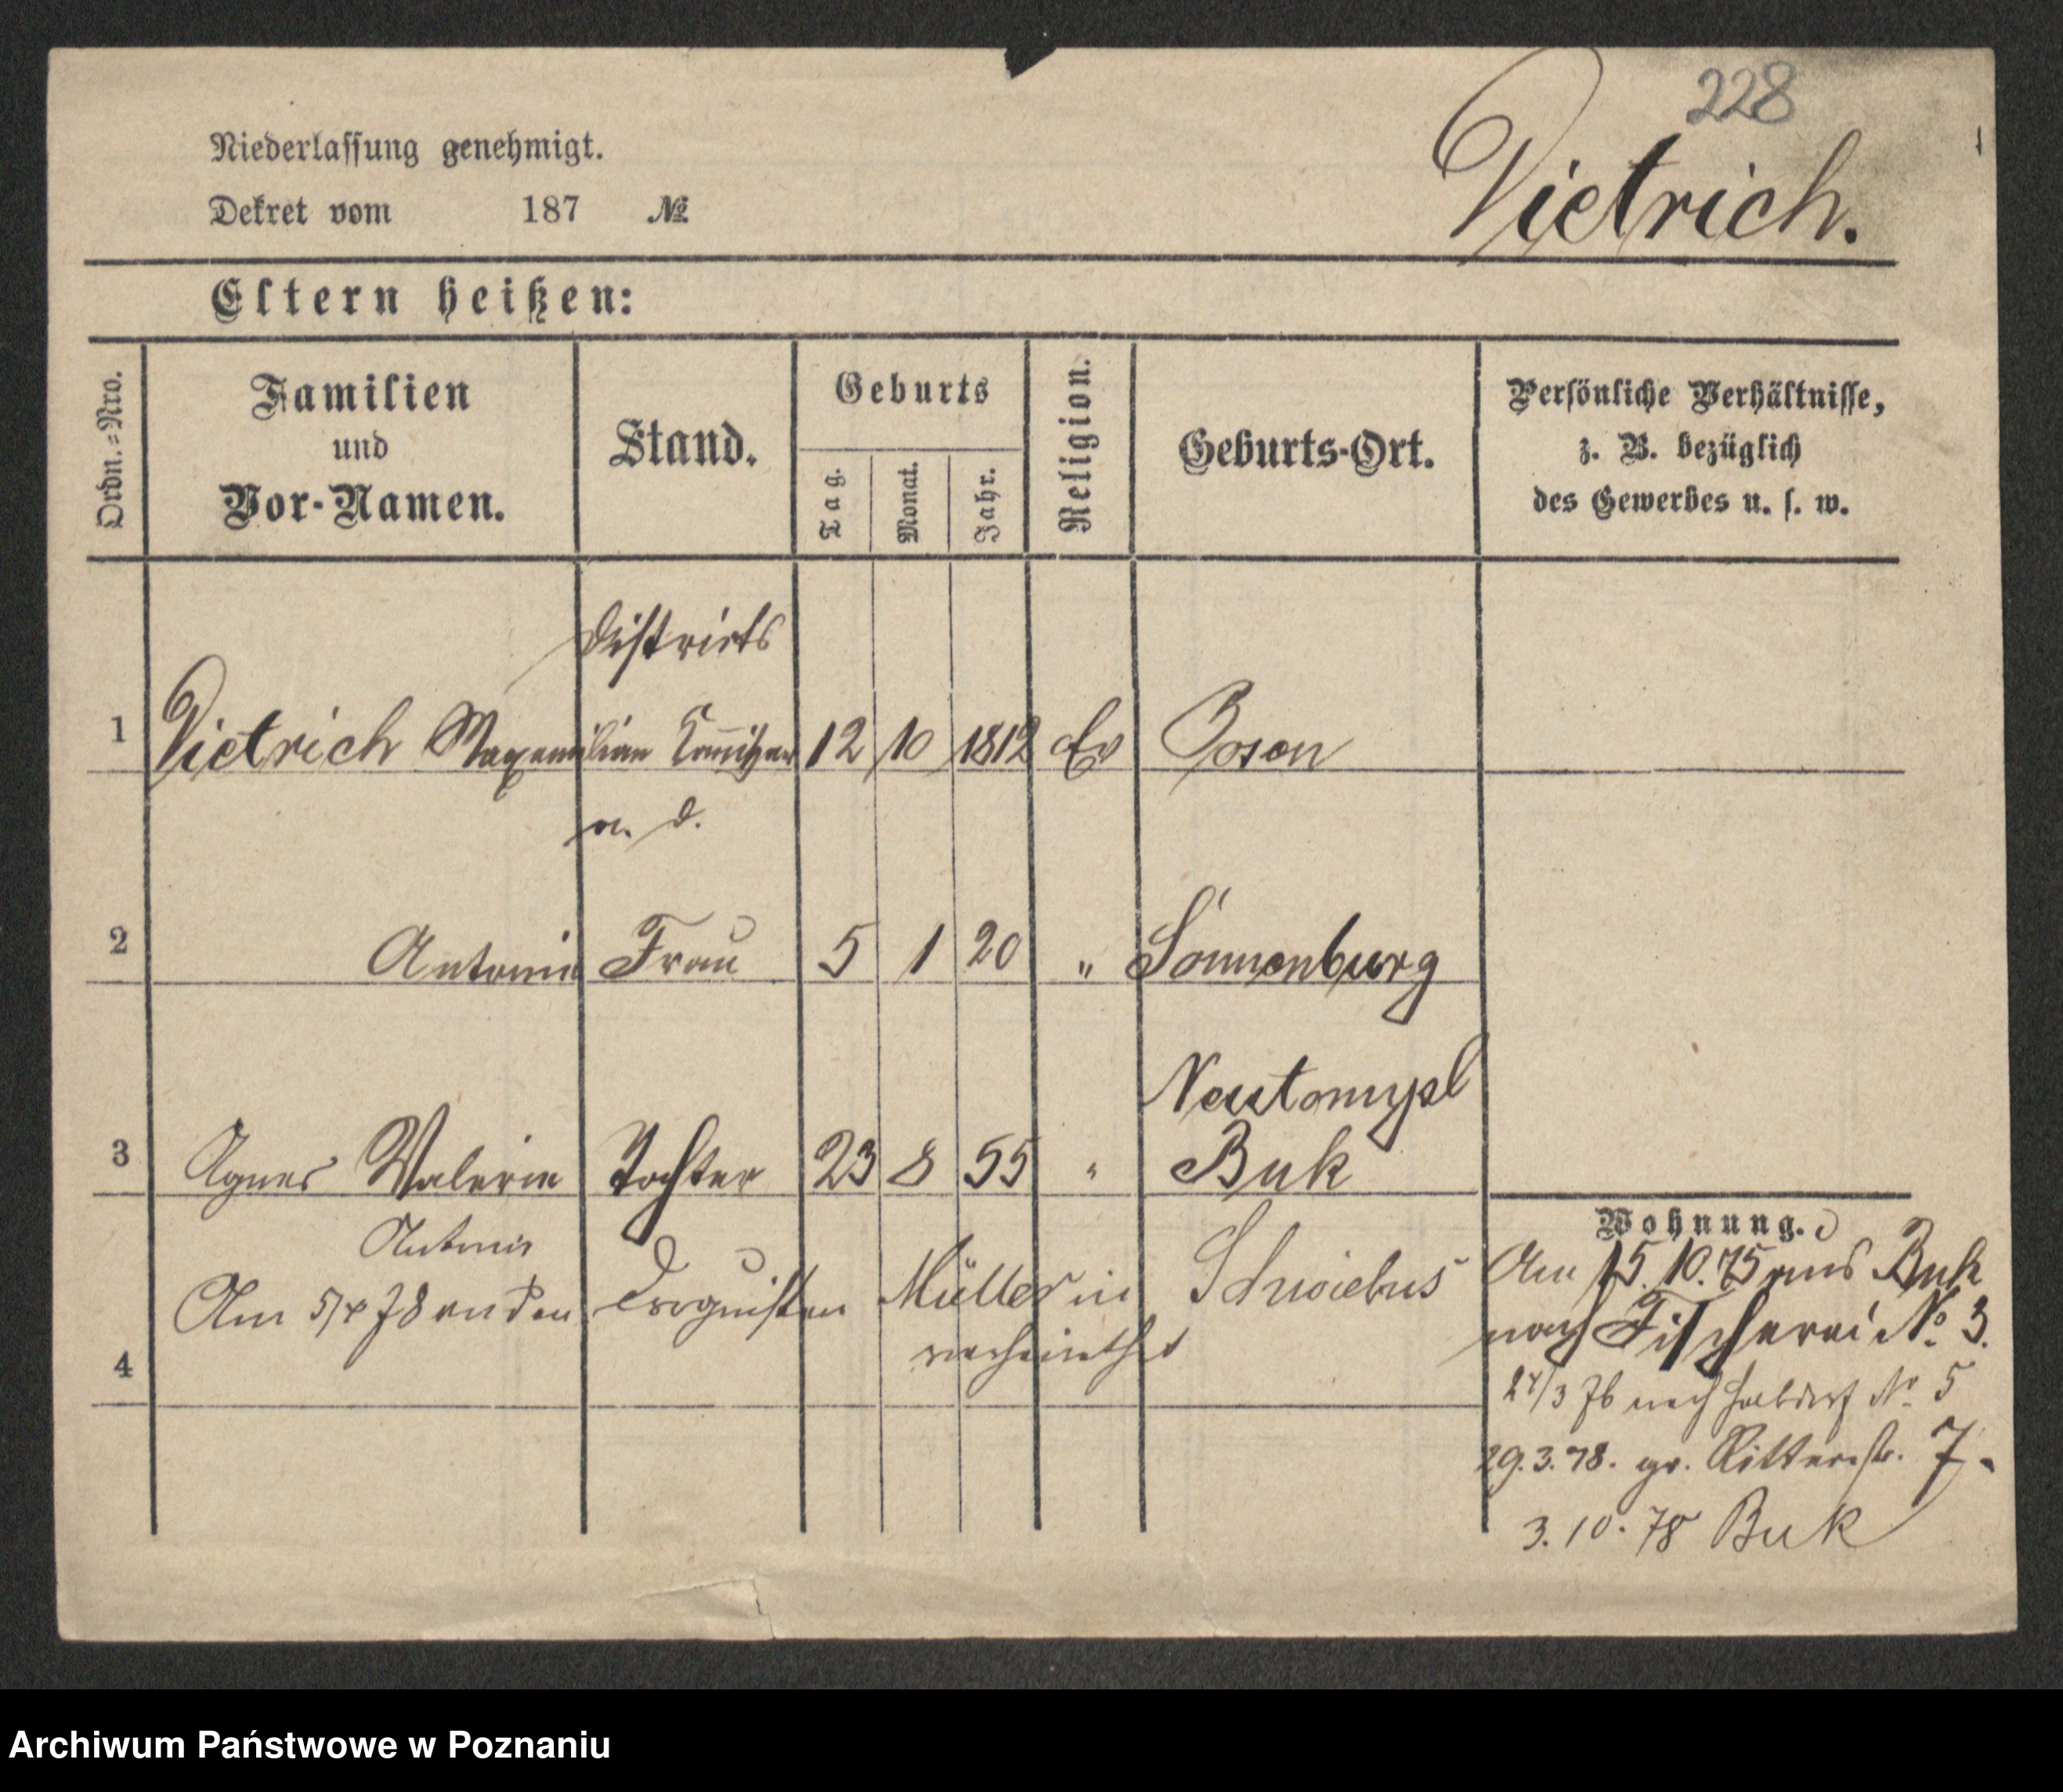 228
Dietrich.
Niederlassung genehmigt.
Dekret vom 187 №
Eltern heißen:
Ordn.=Nro.
Familien
und
Vor-Namen.
Stand.
Geburts
Tag.
Monat.
Jahr.
Religion.
Geburts-Ort.
Persönliche Verhältnisse,
z. B. bezüglich
des Gewerbes u. s. w.
Districts
1 Dietrich Maxemilian Commissar 12 10 1812 Ev Posen
a. d.
2 Antonie Frau 5 1 20 " Sonnenburg
Neutomysl
3 Agnes Valerie Tochter 23 8 55 " Buk
Antonie
Am 5/x 78 an den Droguisten Müller in Schwiebus
verheirathet
4
Wohnung.
Am 15.10.75 aus Buk
nach Fischerei No. 3.
24/3 76 nach Halbdorf No. 5
29.3.78. gr. Ritterstr. 7.
3.10.78 Buk
Archiwum Państwowe w Poznaniu